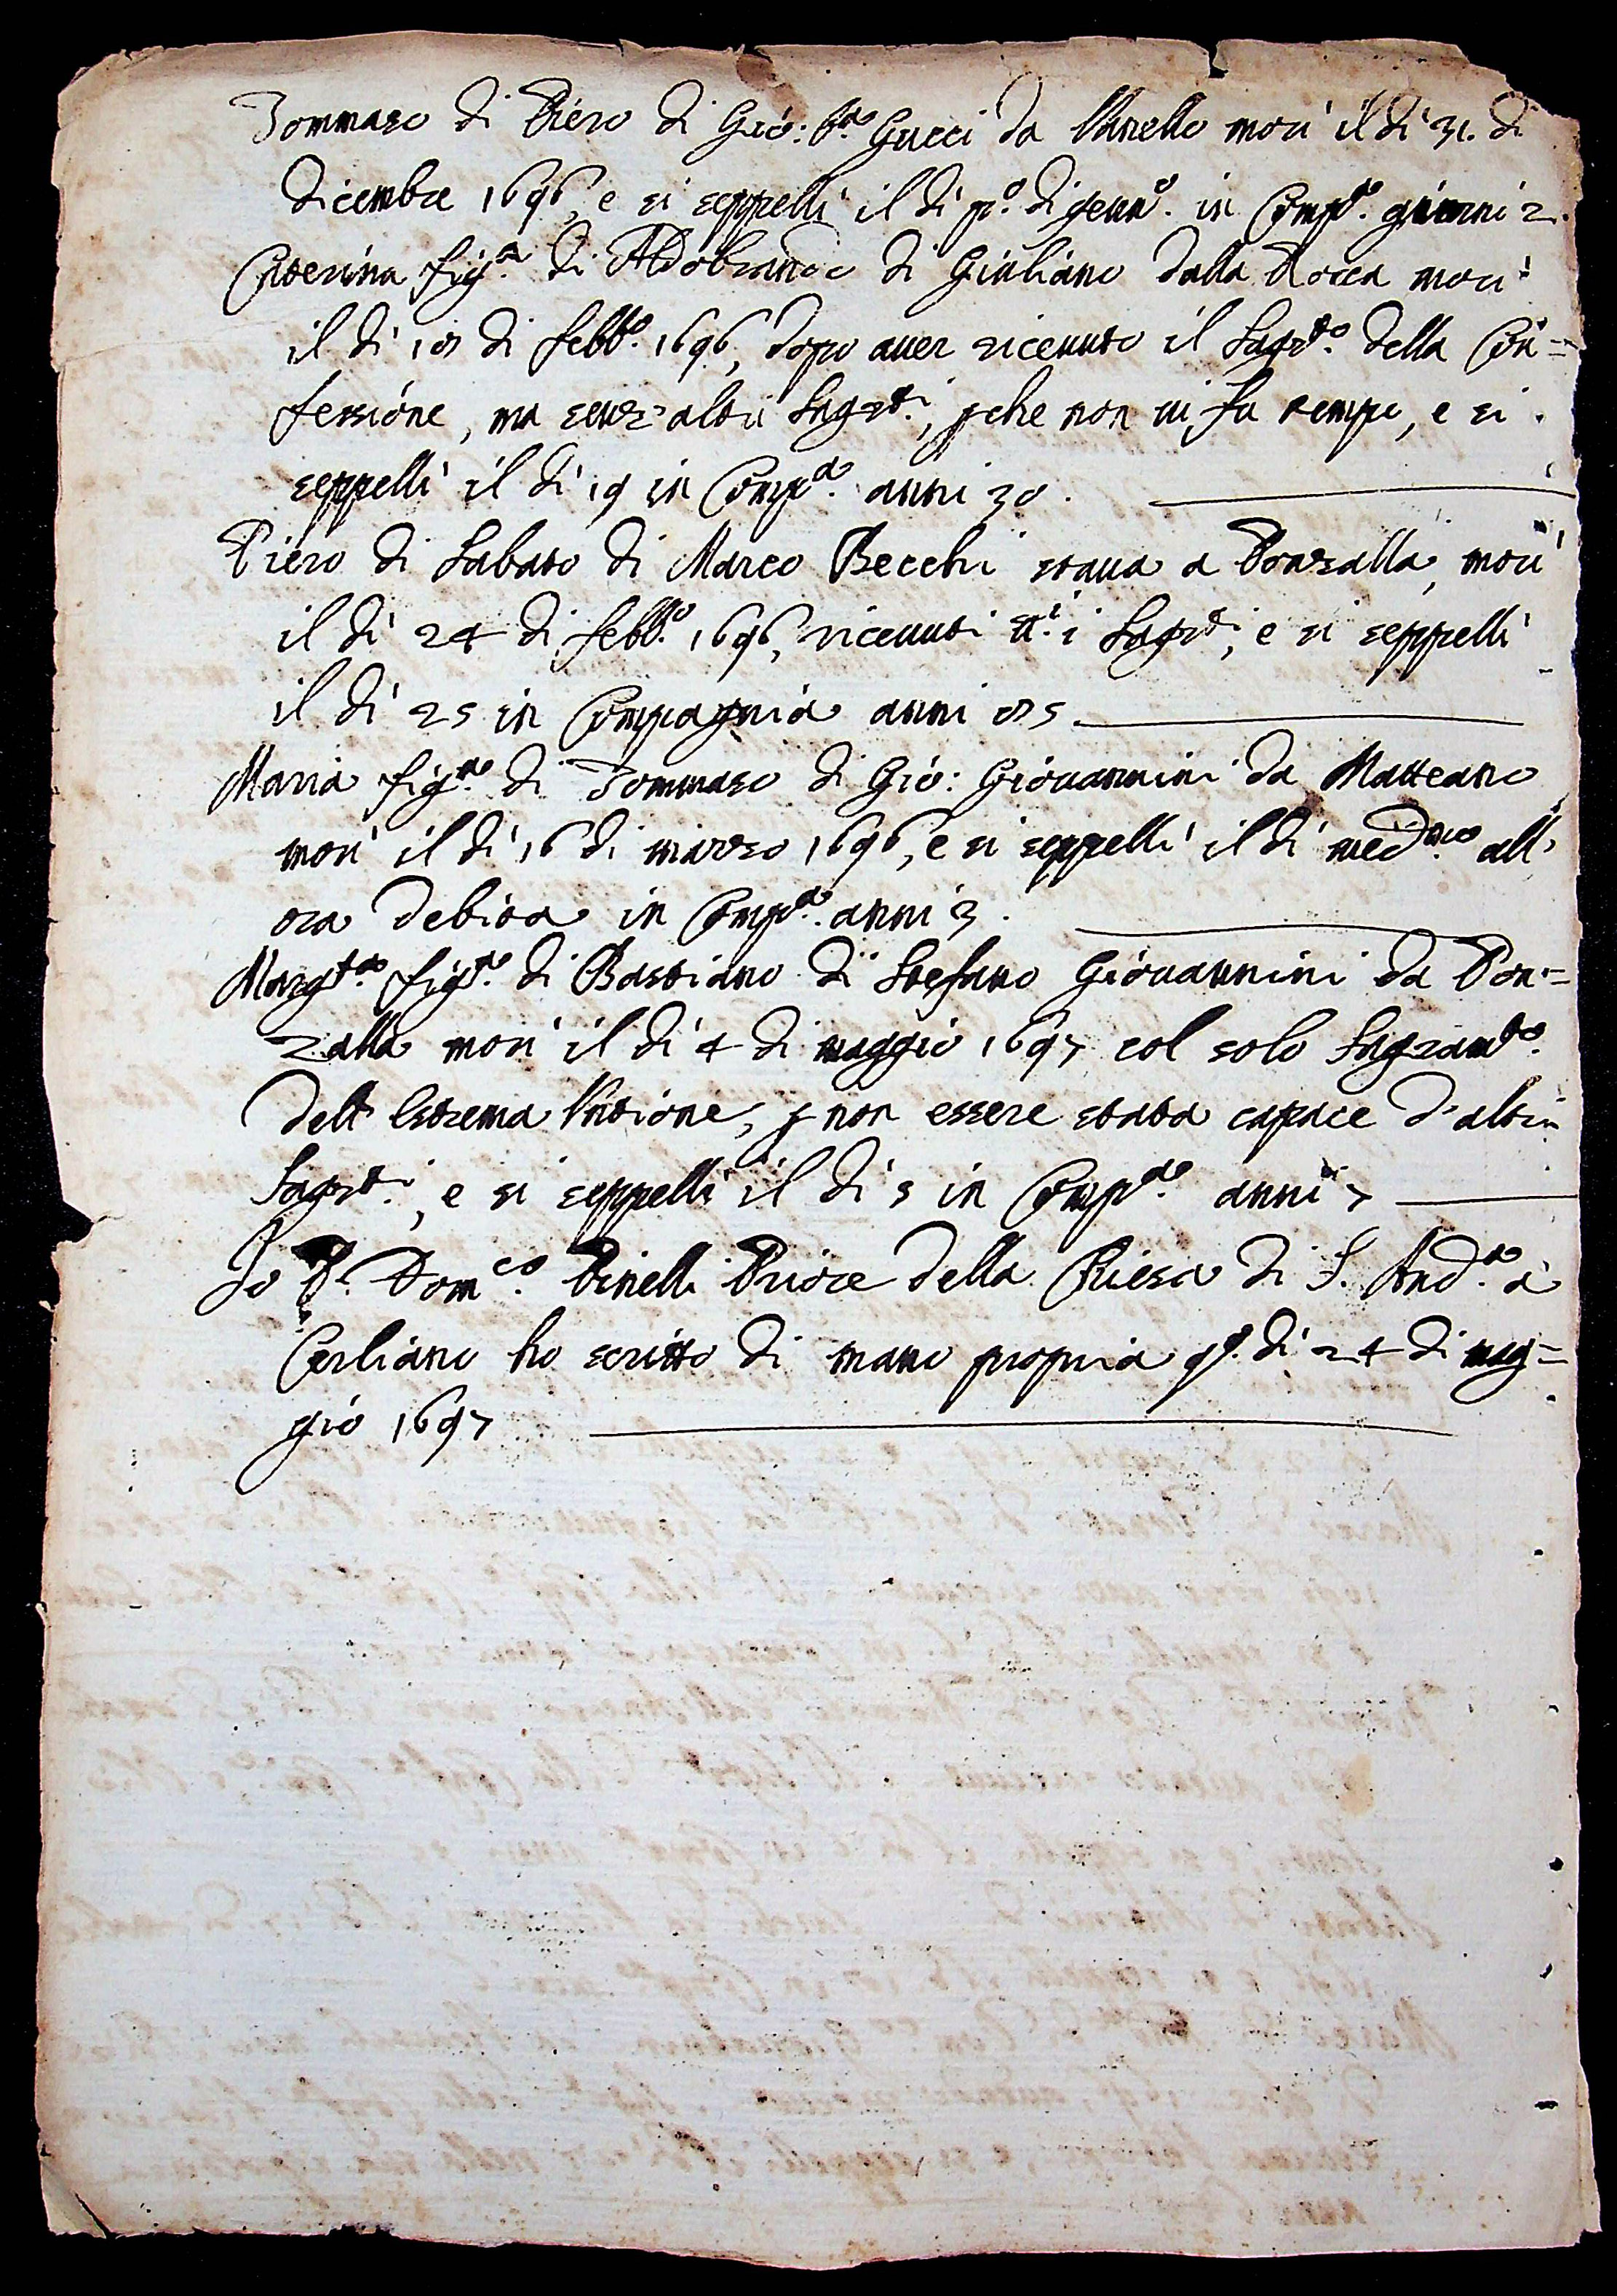 Tommaso di Piero di Gio: Bta. Gucci da Vanello morì il dì 31. di
dicembre 1696, e si seppellì il dì po. di genno. in Compa. giorni 2.
Caterina figa. di Aldobrando di Giuliano dalla Rocca morì
il dì 18 di febbo. 1696, dopo auer riceuuto il Sagrto. della Con=
fessione, ma senz'altri Sagrti., pche non ui fu tempo, e si
seppellì il dì 19 in Compa. anni 30.
Piero di Sabato di Marco Becchi staua a Ponzalla, morì
il dì 24 di febbo. 1696, riceuuti tti. i Sagrti, e si seppellì
il dì 25 in Compagnia anni 85
Maria figa. di Tommaso di Gio: Giouannini da Matteano
morì il dì 16 di marzo 1696, e si seppellì il dì medmo. all'
ora debita in Compa. anni 3.
Margta. figa. di Bastiano di Stefano Giouannini da Pon=
zalla morì il dì 4 di maggio 1697 col solo Sagramto.
dell'Estrema Untione, p non essere stata capace d'altri
Sagrti., e si seppellì il dì 5 in Compa. anni 7
Io P. Domco. Pinelli Priore della Chiesa di S. Anda. a
Cerliano ho scritto di mano propria qo. dì 24 di mag=
gio 1697